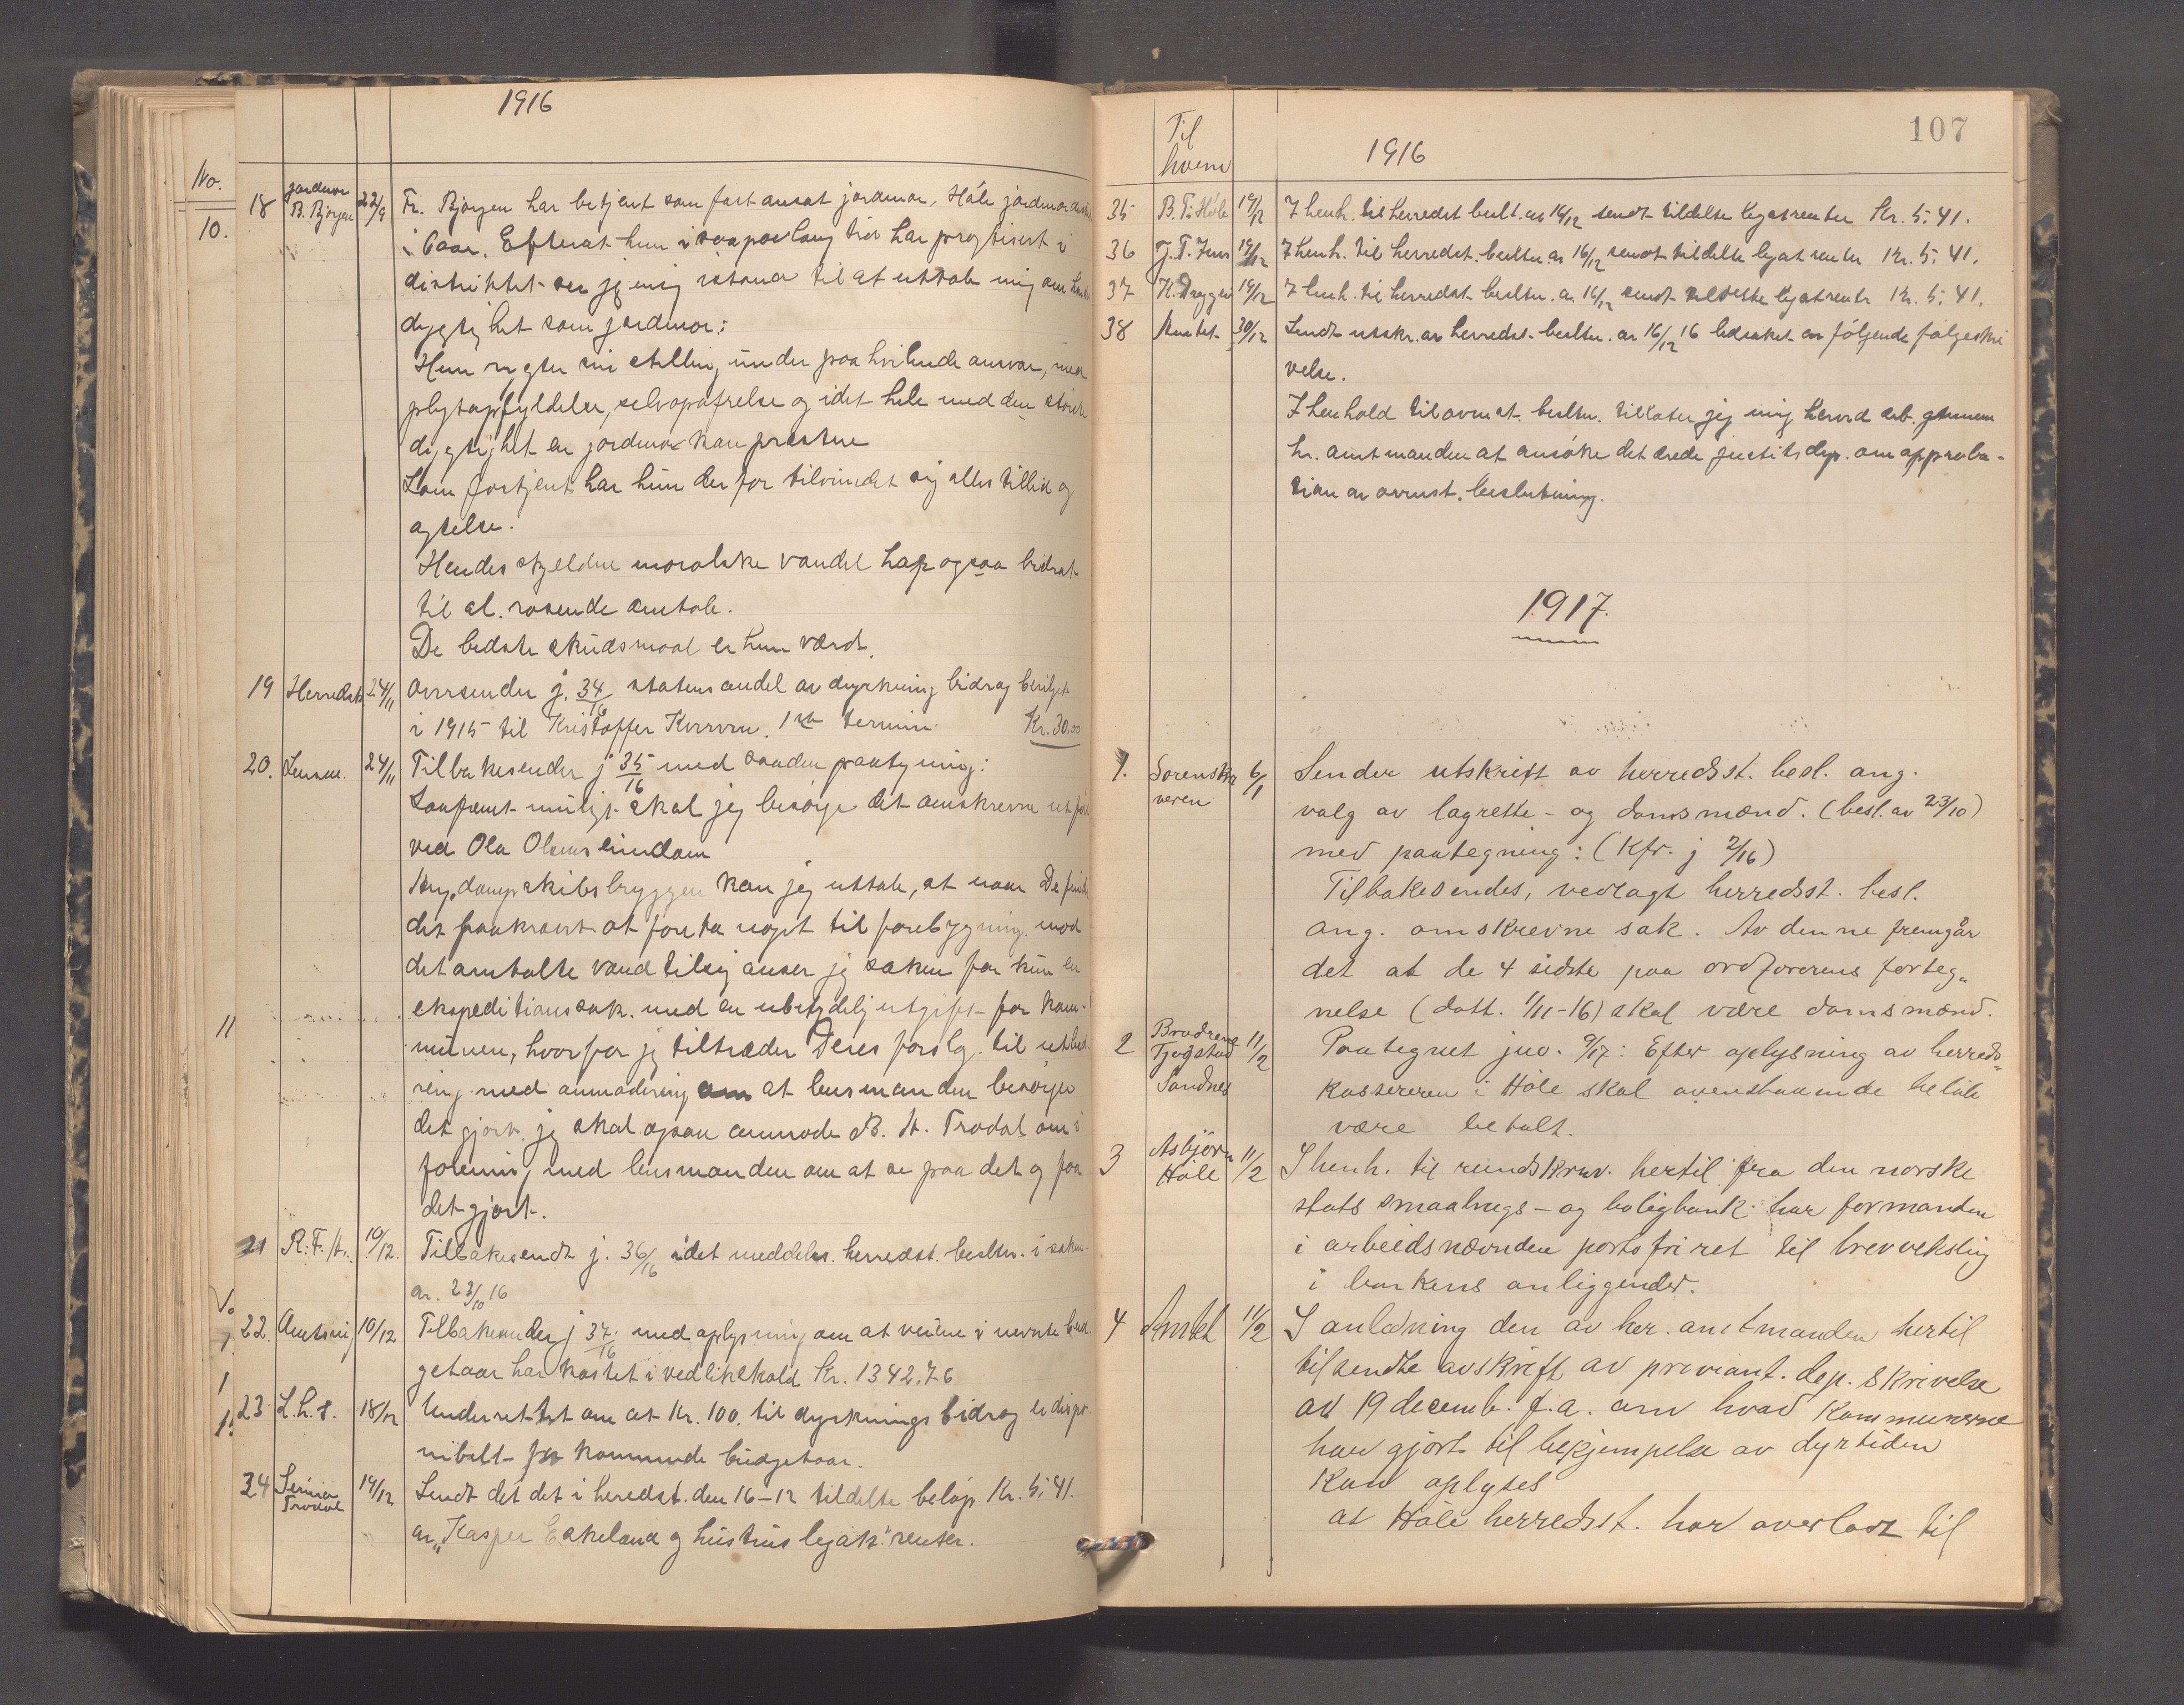 1916
No.
10.
11
18 Jordmor B. Bjørgen 22/9 Fr. Bjørgen har betjent som fast ansat jordmor, Høle jordmordistr.
i 6 aar. Efterat hun i saapas lang tid har praktisert i
distriktet ser jeg mig istand til at uttale mig om hendes
dygtighet som jordmor:
Hun rygter sin stilling under paahvilende ansvar, med
pligtopfyldelse, selvopofrelse og i det hele med den største
dygtighet en jordmor kan præstere
Som fortjent har hun derfor tilvundet sig alles tillid og
agtelse.
Hendes skjeldne moralske vandel har ogsaa bidrat
til al rosende omtale.
De bedste skudsmaal er hun værd.
19 Herredsk. 24/11 Oversender j. 34/16 statens andel av dyrkning bidrag bevilget
i 1915 til Kristoffer Kverven. 1ste termin. Kr. 30.00
20. Lensm. 24/11 Tilbakesender j 35/16 med saaden paategning:
Saafremt muligt skal jeg besørge det omskrevne utført
ved Ola Olsens eiendom
Ang. dampskibsbryggen kan jeg uttale, at naar De finder
det paakrævet at foreta noget til forebygning mod
det omtalte vandtilsig anser jeg saken for kun en
ekspeditionssak med en ubetydelig utgift for kom-
munen, hvorfor jeg tiltræder Deres forslag til utbed
ring med anmodning om at lensmanden besørger
det gjort. jeg skal ogsaa anmode B. H. Trodal om i
forening med lensmanden om at se paa det og faa
det gjort.
21 R. F. H. 10/12. Tilbakesendt j. 36/16 idet meddeles herredst. besltn. i saken
av 23/10 16
22. Amtsing 10/12 Tilbakesender j 37/16 med oplysning om at veiene i nevnte bud
getaar har kostet i vedlikehold Kr. 1342.76
23 L. h. s. 18/12 Underrettet om at Kr. 100. til dyrknings bidrag er dispo
nibelt for kommende budgetaar.
34 Serina Trodal 19/12 Sendt det det i heredst. den 16-12 tildelte beløp Kr. 5.41.
av „Kasper Eskeland og hustrus legat" renter.
107
Til
hvem
1916
35 B. T. Høle 19/12 I henh. til herredst beslt. av 16/12 sendt tildelte legatrenter Kr. 5.41.
36 T. T. 19/12 I henh. til herredst. besltn av 16/12 sendt tildelte legatrenter Kr. 5.41.
37 K. Dreggen 19/12 I henh. til herredst besltn. av 16/12 sendt tildelte legatrenter Kr. 5.41.
38 Amtet 30/12 Sendt utskr. av herredst. besltn. av 16/12 16 ledsaket av følgende følgeskri
velse.
I henhold til ovenst. besltn. tillater jeg mig herved ærb. gjennem
hr. amtmanden at ansøke det ærede justitsdep. om approba-
tion av ovenst. beslutning.
1917.
1. Sorenskri veren 6/1 Sender utskrift av herredsst. besl. ang.
valg av lagrette- og domsmænd. (besl. av 23/10)
med paategning: (Kfr. j 2/16)
Tilbakesendes, vedlagt herredsst. besl.
ang. omskrevne sak. Av denne fremgår
det at de 4 sidste paa ordførerens forteg„
nelse (datt. 1/11-16) skal være domsmænd.
2 Brødrene Tjøgstad Sandnes 11/2 Paategnet juv. 9/17: Efter oplysning av herreds„
kassereren i Høle skal ovenstaaende beløb
være betalt.
3 Asbjørn Høle 11/2 I henh. til rundskriv. hertil fra den norske
stats smaabrugs- og boligbank har formanden
i arbeidsnævnden portofriret til brevveksling
i bankens anliggender.
4 Amtet 11/2 I anledning den av her. amtmanden hertil
tilsendte avskrift av proviant. dep. skrivelse
av 19 decemb. f.a. om hvad kommunerne
har gjort til bekjempelse av dyrtiden
kan oplyses
at Høle herredsst. har overladt til